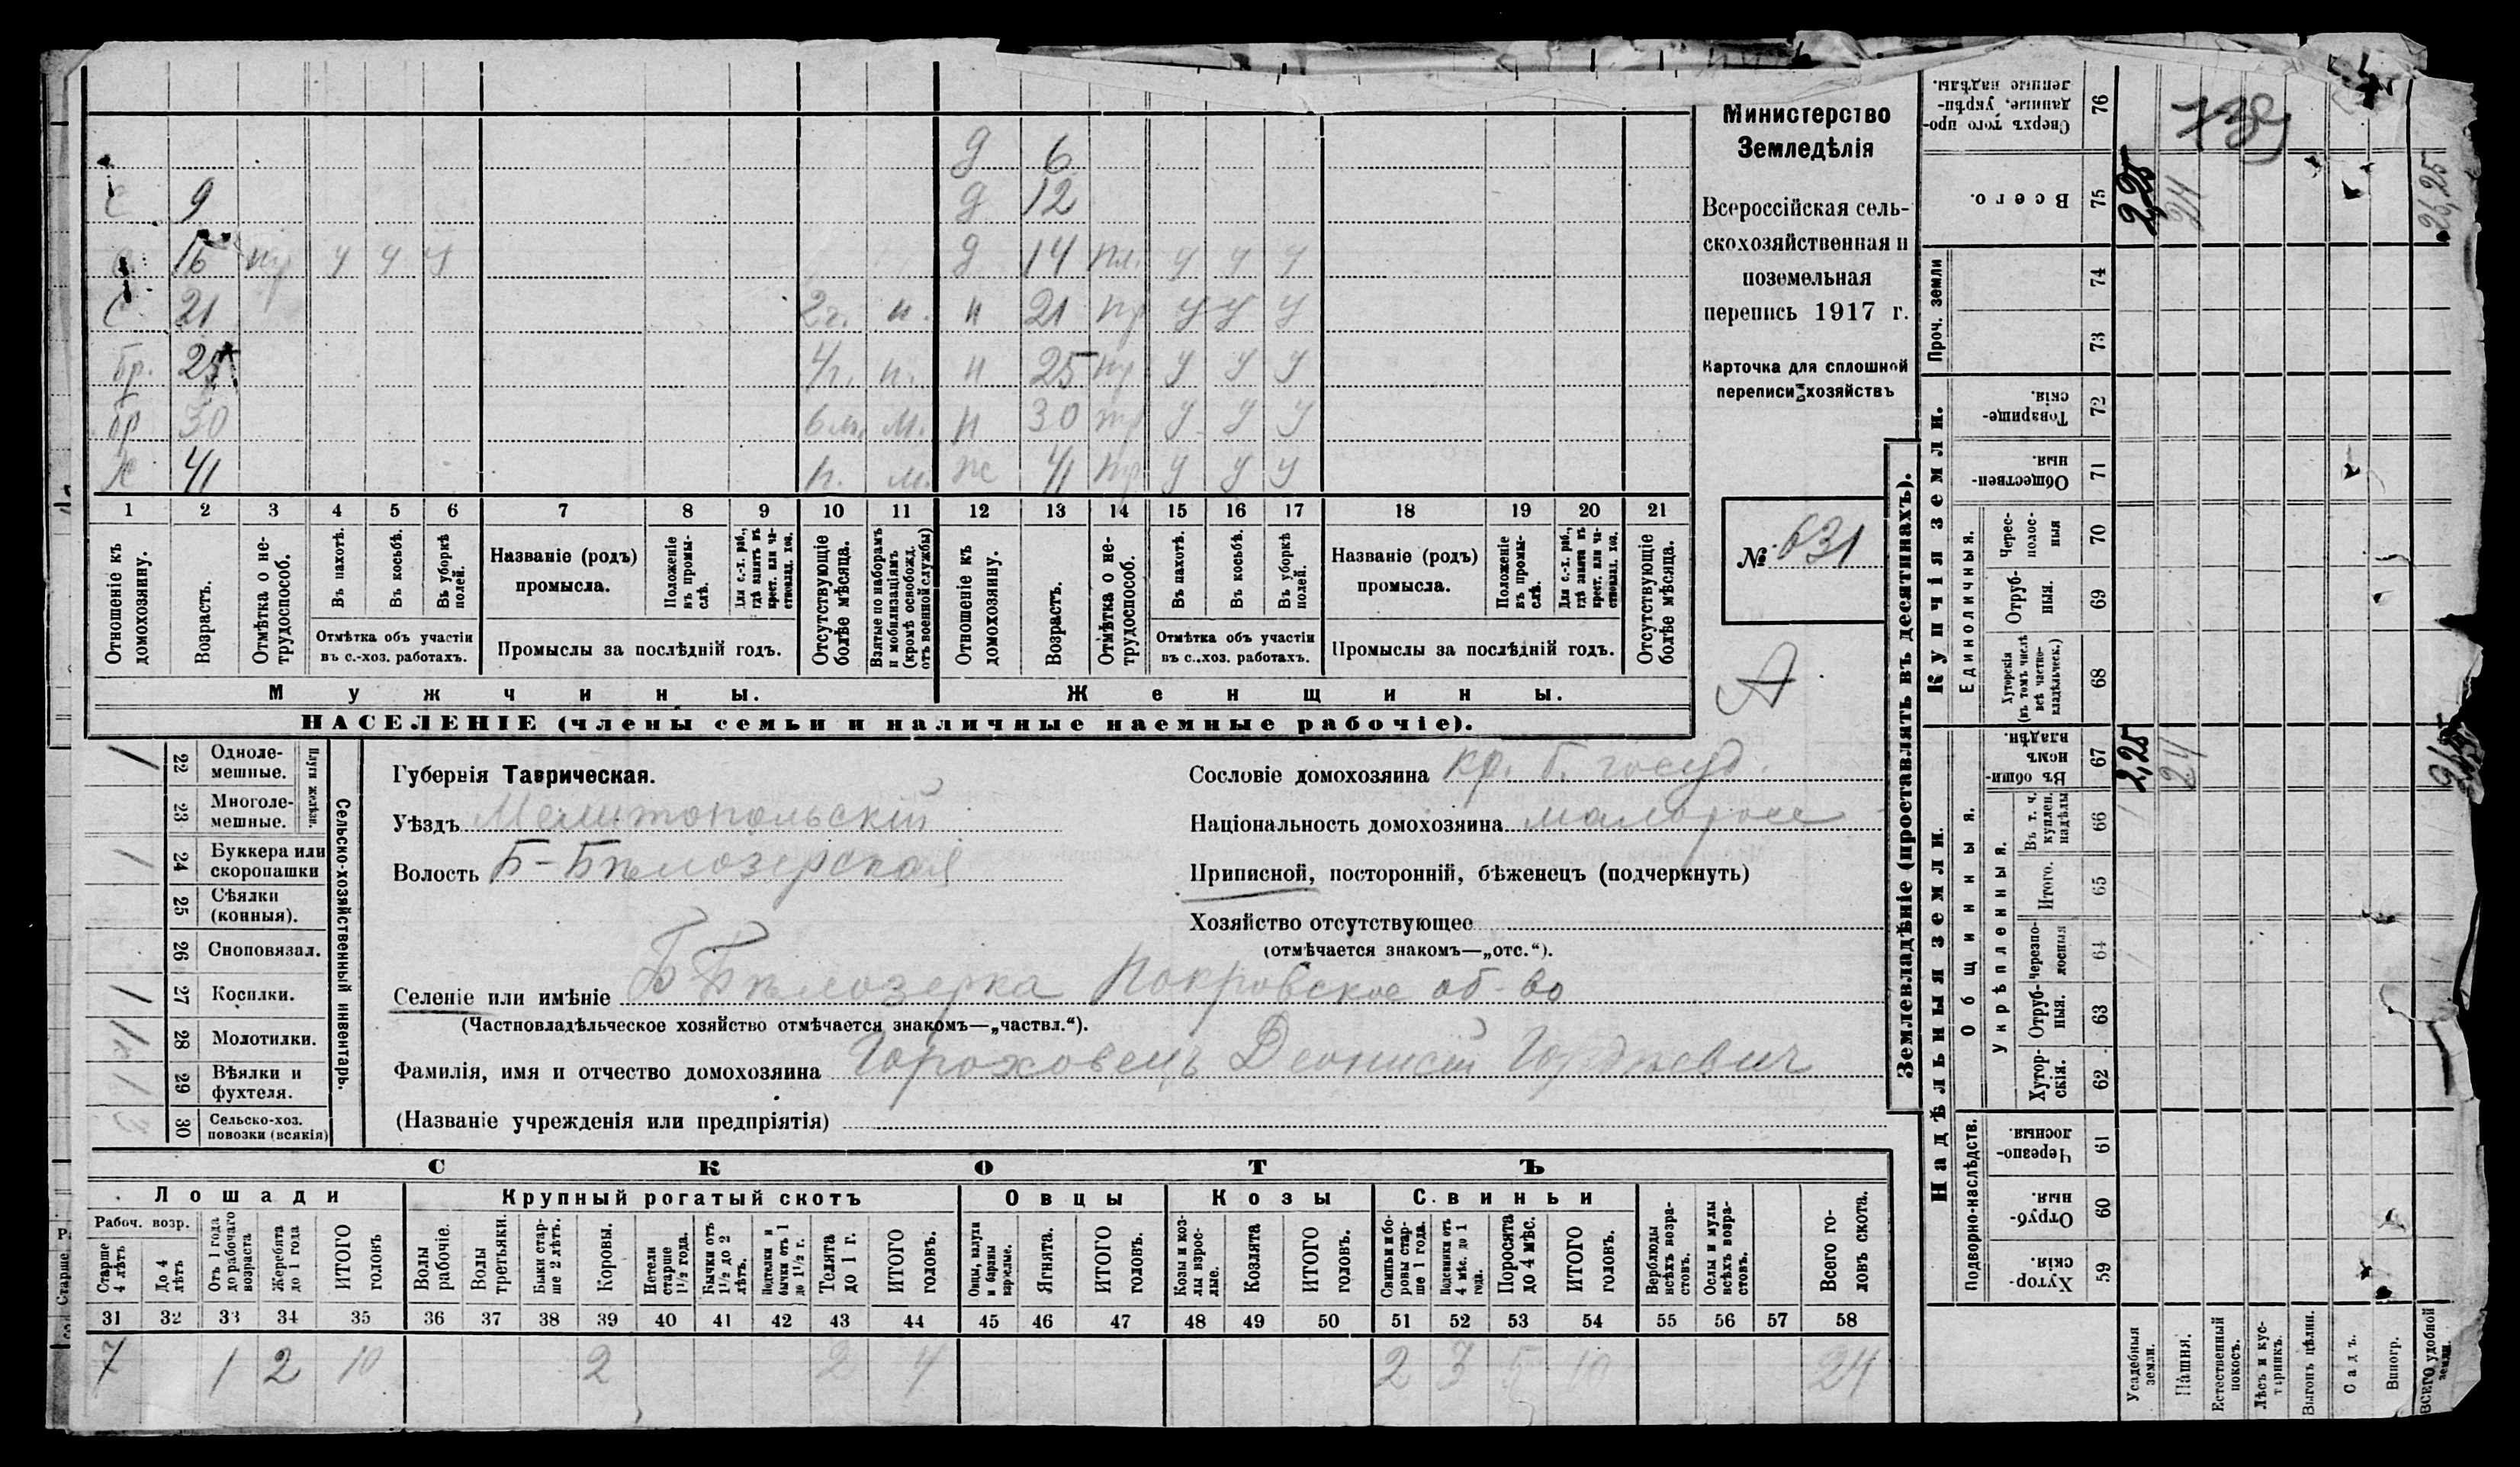 д 6
с 9 д 12
с 16 пр у у у д 14 пл. у у у
с. 21 2г. п. н 21 пр у у у
бр. 25 4г. п. н 25 пр у у у
бр 30 6м. м. н 30 пр у у у
х 41 п. м. ж 41 пр у у у
1 2 3 4 5 6 7 8 9 10 11 12 13 14 15 16 17 18 19 20 21
Отношеніе къ домохозяину.
Возрастъ.
Отмѣтка о нетрудоспособ.
Въ пахотѣ.
Въ косьбѣ.
Въ уборкѣ полей.
Отмѣтка объ участіи въ с.-хоз. работахъ.
Названіе (родъ) промысла.
Положеніе въ промыслѣ.
Для с.-х. раб., гдѣ занятъ въ крест. или частновлад. хоз.
Промыслы за послѣдній годъ.
Отсутствующіе болѣе мѣсяца.
Взятые по наборамъ и мобилизаціямъ (кромѣ освобожд. отъ военной службы)
Отношеніе къ домохозяину.
Возрастъ.
Отмѣтка о нетрудоспособ.
Въ пахотѣ.
Въ косьбѣ.
Въ уборкѣ полей.
Отмѣтка объ участіи въ с.-хоз. работахъ.
Названіе (родъ) промысла.
Положеніе въ промыслѣ.
Для с.-х. раб., гдѣ занята въ крест. или частновлад. хоз.
Промыслы за послѣдній годъ.
Отсутствующіе болѣе мѣсяца.
Мужчины. Женщины.
НАСЕЛЕНІЕ (члены семьи и наличные наемные рабочіе).
Министерство
Земледѣлія
Всероссійская сель-
скохозяйственная и
поземельная
перепись 1917 г.
Карточка для сплошной
переписи хозяйствъ
№ 631
А
22 Одноле-мешные.
23 Многоле-мешные.
Плуги желѣзн.
24 Буккера или скоропашки
25 Сѣялки (конныя).
26 Сноповязал.
27 Косилки.
28 Молотилки.
29 Вѣялки и фухтеля.
30 Сельско-хоз. повозки (всякія)
Сельско-хозяйственный инвентарь.
Губернія Таврическая.
Уѣздъ Мелитопольскій
Волость Б-Бѣлозерская
Сословіе домохозяина кр. б. госуд.
Національность домохозяина малоросс
Приписной, посторонній, бѣженецъ (подчеркнуть)
Хозяйство отсутствующее
(отмѣчается знакомъ—„отс.“).
Селеніе или имѣніе Б Бѣлозерка Покровское об-во
(Частновладѣльческое хозяйство отмѣчается знакомъ—„частвл.“).
Фамилія, имя и отчество домохозяина Гороховецъ Деонисій Гордѣевич
(Названіе учрежденія или предпріятія)
СКОТЪ
Лошади Крупный рогатый скотъ Овцы Козы Свиньи
Рабоч. возр.
Старше 4 лѣтъ
До 4 лѣтъ
Отъ 1 года до рабочаго возраста
Жеребята до 1 года
ИТОГО головъ
Волы рабочіе.
Волы третьяки.
Быки старше 2 лѣтъ.
Коровы.
Нетели старше 1½ года.
Бычки отъ 1½ до 2 лѣтъ.
Подтелки и бычки отъ 1 до 1½ г.
Телята до 1 г.
ИТОГО головъ.
Овцы, валухи и бараны взрослые.
Ягнята.
ИТОГО головъ.
Козы и козлы взрослые.
Козлята
ИТОГО головъ.
Свиньи и боровы старше 1 года.
Подсвинки отъ 4 мѣс. до 1 года.
Поросята до 4 мѣс.
ИТОГО головъ.
Верблюды всѣхъ возрастовъ.
Ослы и мулы всѣхъ возрастовъ.
Всего головъ скота.
31 32 33 34 35 36 37 38 39 40 41 42 43 44 45 46 47 48 49 50 51 52 53 54 55 56 57 58
7 1 2 10 2 2 4 2 3 5 10 24
Землевладѣніе (проставлять въ десятинахъ).
Купчія земли.
Надѣльныя земли.
Сверхъ того проданные, укрѣпленные надѣлы. 76 739
Всего. 75 2,25 24 26,25
Проч. земли 74
73
Товарищескія. 72
Общественныя. 71
Единоличныя.
Чересполосныя 70
Отрубныя. 69
Хуторскія (въ томъ числѣ всѣ частновладѣльческ.) 68
Общинныя.
Въ общинномъ владѣн. 67 2,25 24
Укрѣпленныя.
Въ т. ч. куплен. надѣлы 66
Итого. 65
Черезполосныя 64
Отрубныя. 63
Хуторскія. 62
Подворно-наслѣдств.
Черезполосныя. 61
Отрубныя. 60
Хуторскія. 59
Усадебныя земли.
Пашня.
Естественный покосъ.
Лѣсъ и кустарникъ.
Выгонъ цѣлин.
Садъ.
Виногр.
ВСЕГО удобной земли.